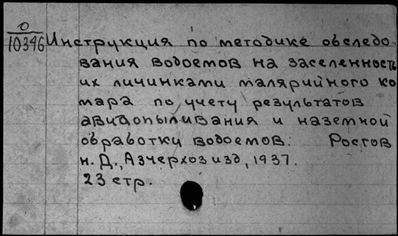 О
10346
Инструкция по методике обследо-
вания водоемов на заселенность
их личинками малярийного ко
мара по учету результатов
авиаопыливания и наземной
обработки водоемов. Ростов
н. Д., Азчерхозизд, 1937.
23 стр.